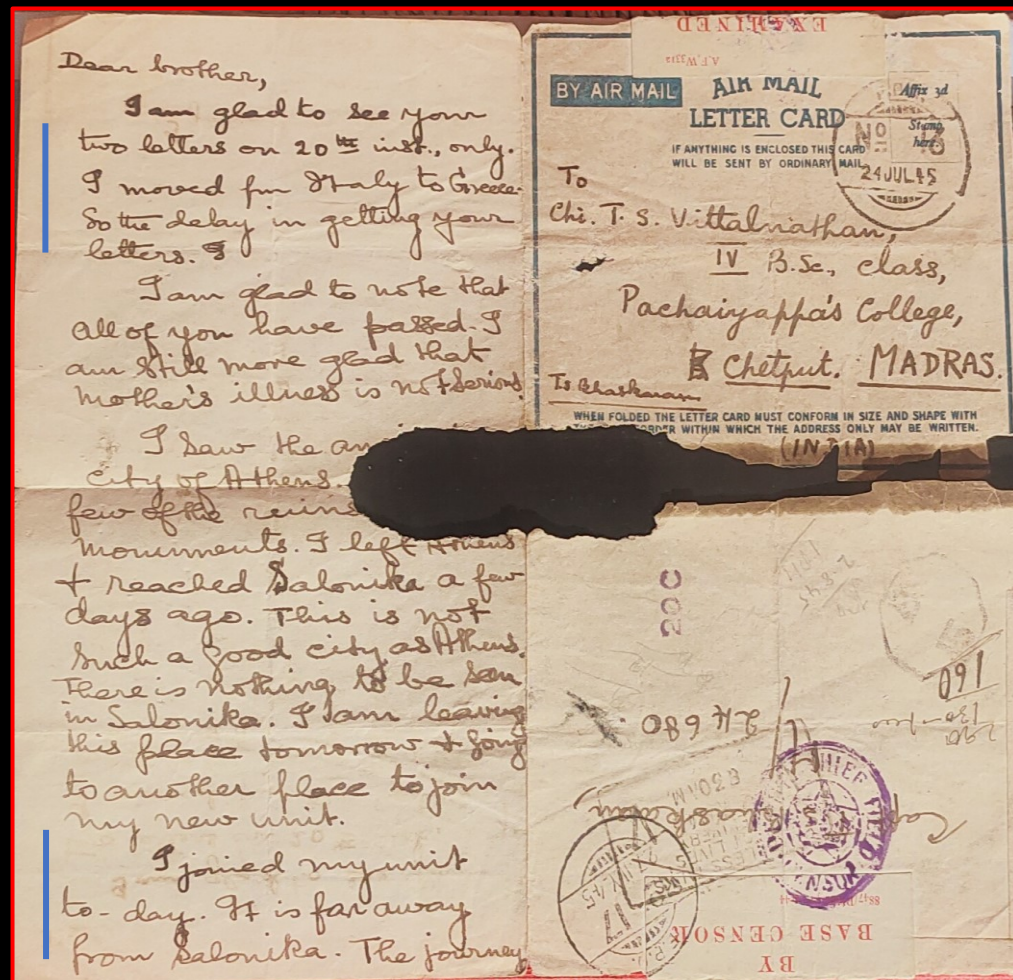 Dear brother,
I am glad to see your
two letters on 20th inst., only.
I moved fm Italy to Greece.
So the delay in getting your
letters.
I am glad to note that
all of you have passed. I
am still more glad that
mother's illness is not serious.
I saw the
city of Athens.
few of the ruins
monuments. I left Athens
+ reached Salonika a few
days ago. This is not
such a good city as Athens.
There is nothing to be seen
in Salonika. I am leaving
this place tomorrow + going
to another place to join
my new unit.
I joined my unit
to-day. It is far away
from Salonika. The journey
EXAMINED
A.F.W3315
BY AIR MAIL
AIR MAIL
LETTER CARD
IF ANYTHING IS ENCLOSED THIS CARD
WILL BE SENT BY ORDINARY MAIL
Affix 3d
Stamp
here.
No 13
24 JUL 45
To
Chi. T. S. Vittalnathan,
IV B.Sc., class,
Pachaiyappa's College,
Chetput. MADRAS.
Is Bhaskaran
WHEN FOLDED THE LETTER CARD MUST CONFORM IN SIZE AND SHAPE WITH
BORDER WITHIN WHICH THE ADDRESS ONLY MAY BE WRITTEN.
(INDIA)
20C
160
24680
8.30AM
Bhaskaran
CHIEF FIELD CENSOR
17
BASE CENSOR
BY